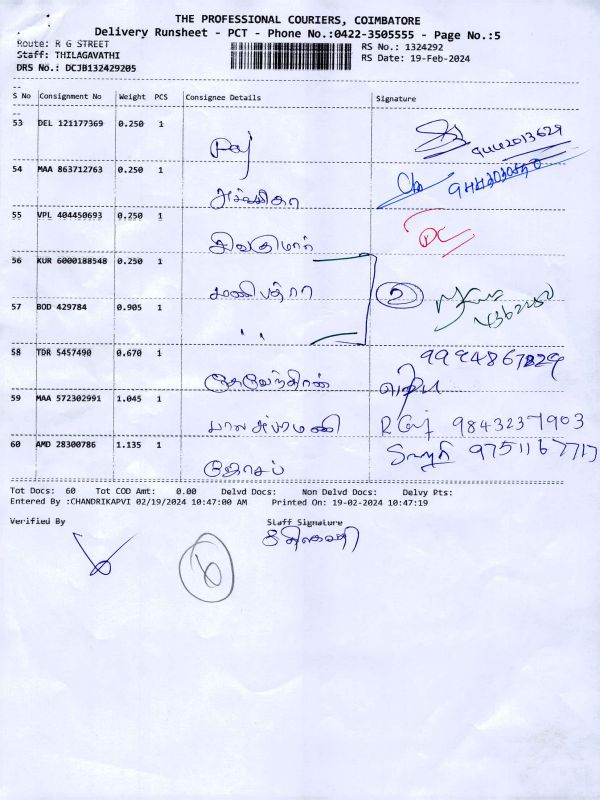 THE PROFESSIONAL COURIERS, COIMBATORE
Delivery Runsheet - PCT - Phone No.:0422-3505555 - Page No.:5
Route: R G STREET
Staff: THILAGAVATHI
DRS No.: DCJB132429205
RS No.: 1324292
RS Date: 19-Feb-2024
S No Consignment No Weight PCS Consignee Details Signature
53 DEL 121177369 0.250 1
Raj
54 MAA 863712763 0.250 1
55 VPL 404450693 0.250 1
சிவகுமார்
56 KUR 6000188548 0.250 1
மணிபத்ரா 2
57 BOD 429784 0.905 1
" "
58 TDR 5457490 0.670 1
தேவேந்திரன்
59 MAA 572302991 1.045 1
பாலசுப்ரமணி 9843237903
60 AMD 28300786 1.135 1
ஜோசப் 9751167717
Tot Docs: 60 Tot COD Amt: 0.00 Delvd Docs: Non Delvd Docs: Delvy Pts:
Entered By :CHANDRIKAPVI 02/19/2024 10:47:00 AM Printed On: 19-02-2024 10:47:19
Verified By Staff Signature